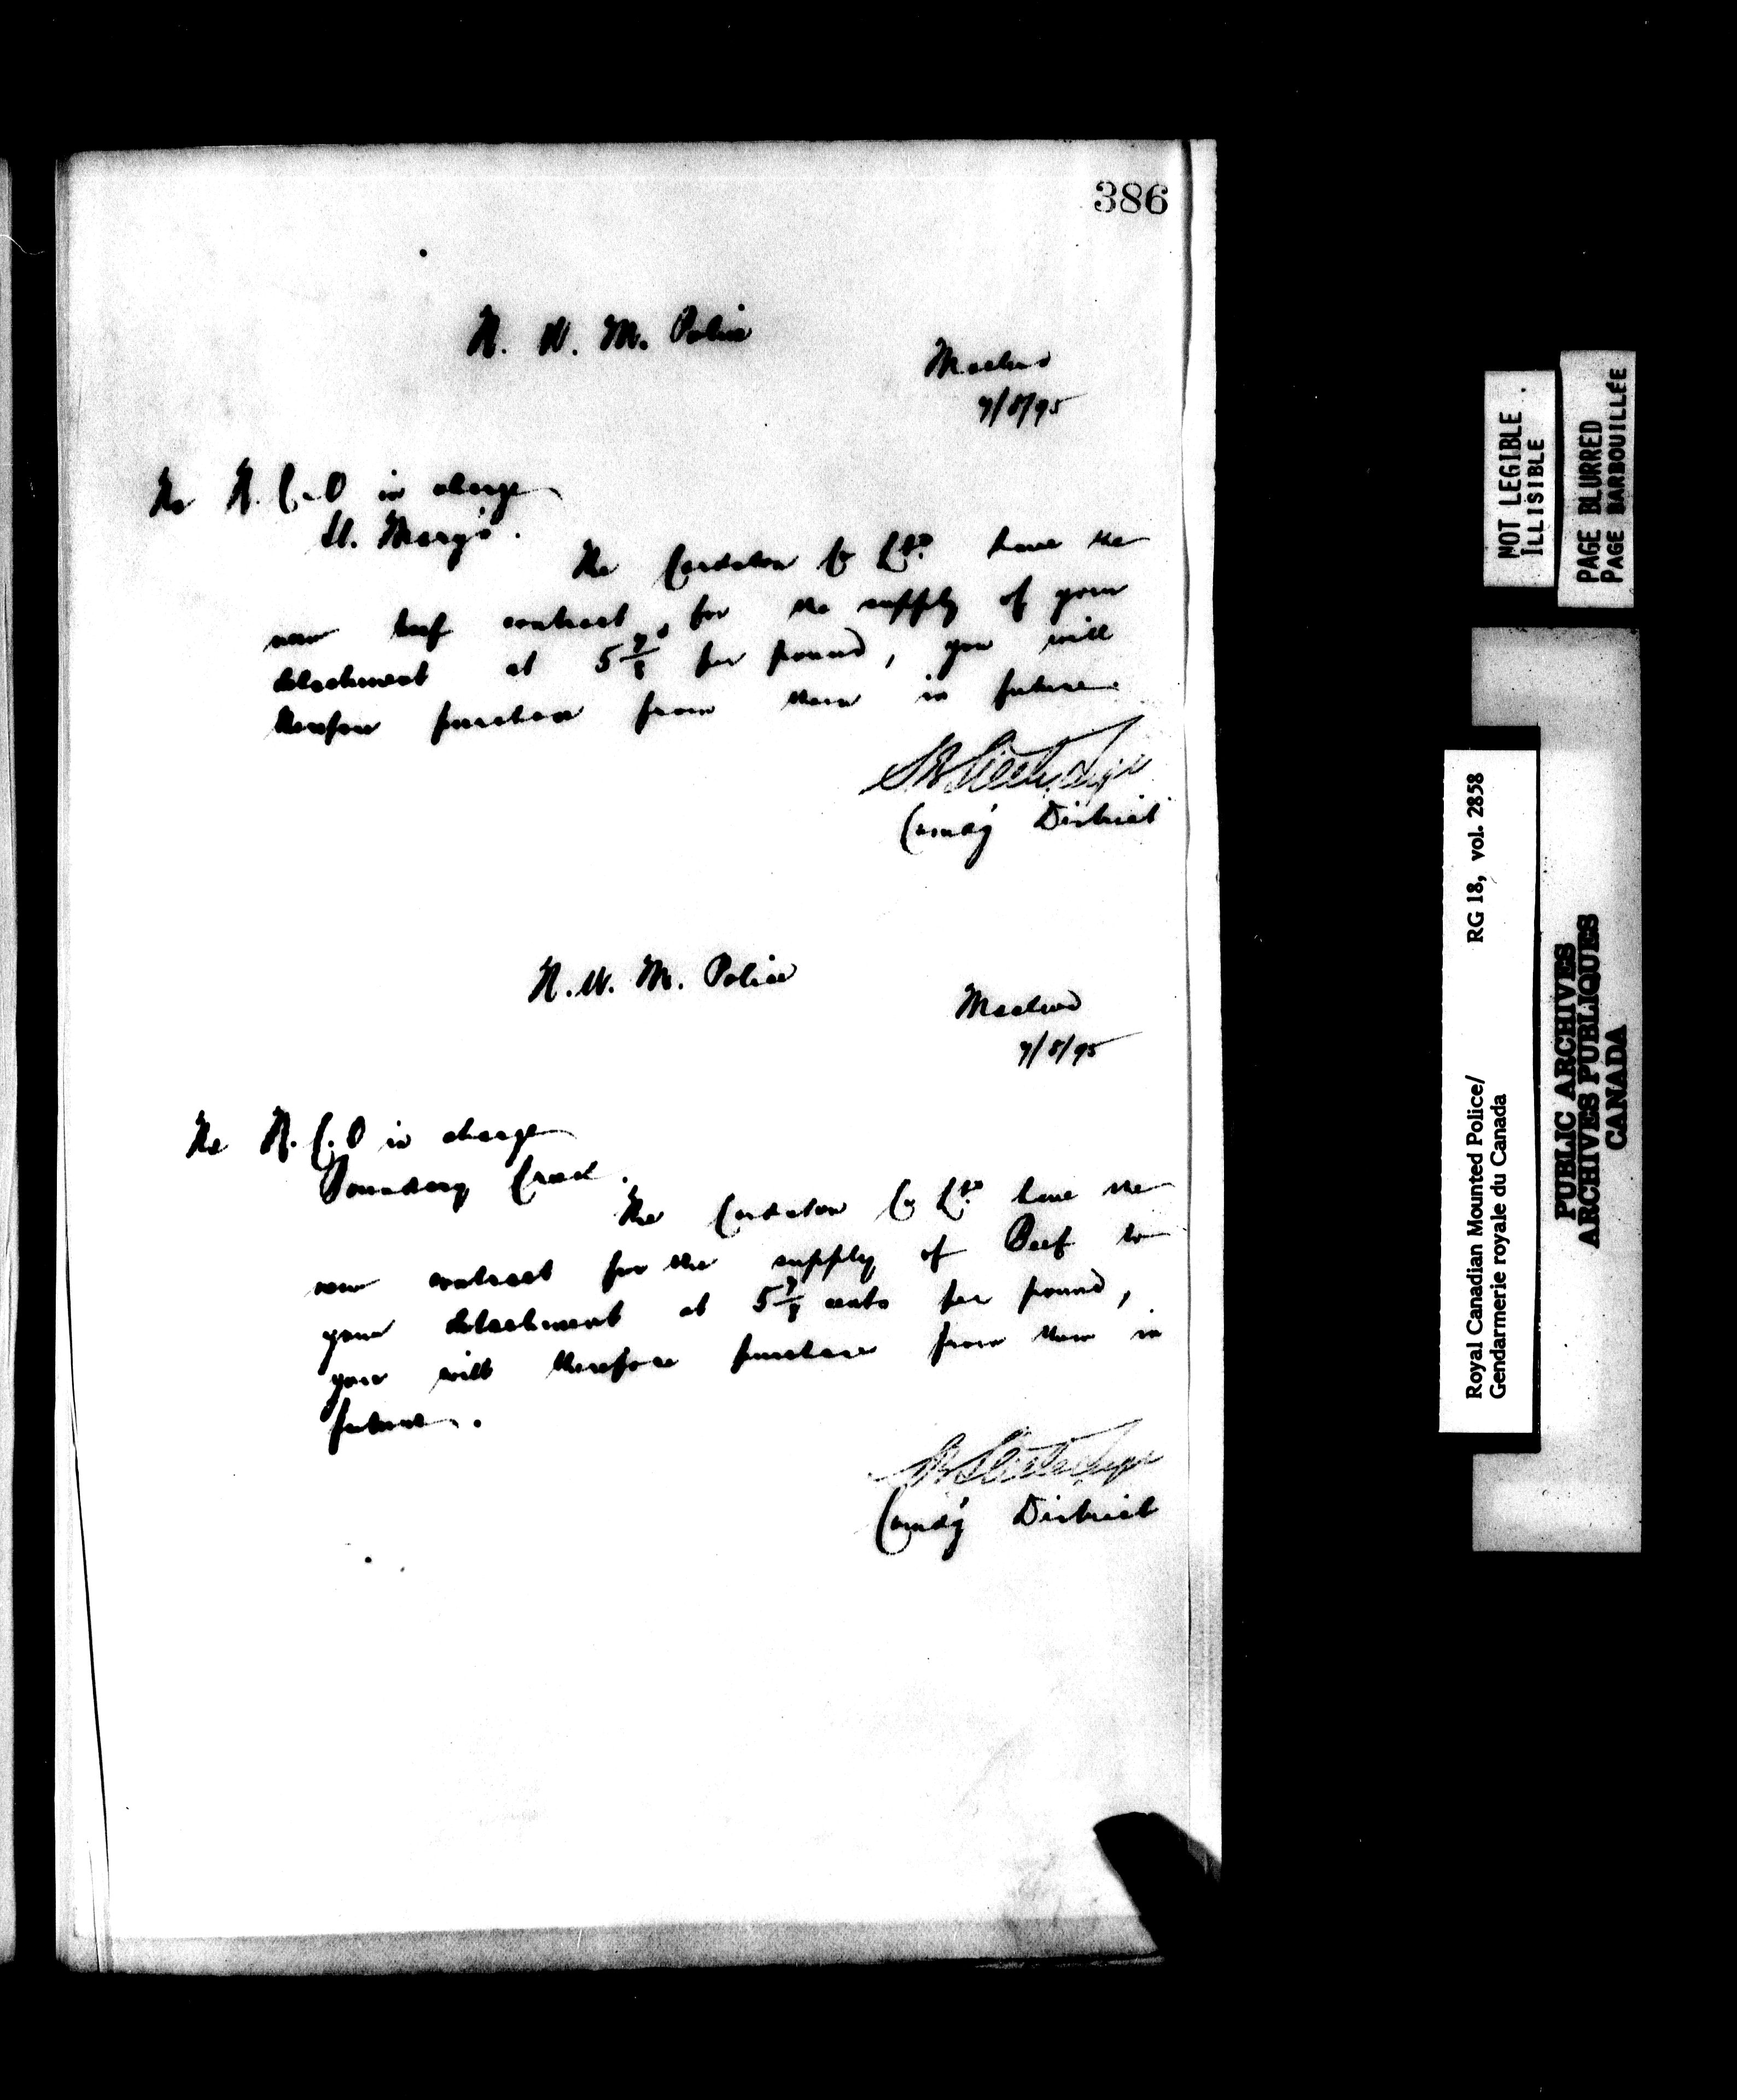 386
N. W. M. Police
Macleod
7/8/95
The N.C.O in charge
St. Mary's.
The Cardston Co Ltd have the
new beef contract, for the supply of your
detachment at 5 7/8 ¢ per pound, you will
therefore purchase from them in future.
Comdg District
N.W. M. Police
Macleod
7/8/95
The N.C.O in charge
Boundary Creek.
The Cardston Co Ltd have the
new contract for the supply of Beef to
your detachment at 5 7/8 cents per pound,
you will therefore purchase from them in
future.
Comdg District
NOT LEGIBLE
ILLISIBLE
PAGE BLURRED
PAGE BARBOUILLÉE
Royal Canadian Mounted Police/ RG 18, vol. 2858
Gendarmerie royale du Canada
PUBLIC ARCHIVES
ARCHIVES PUBLIQUES
CANADA